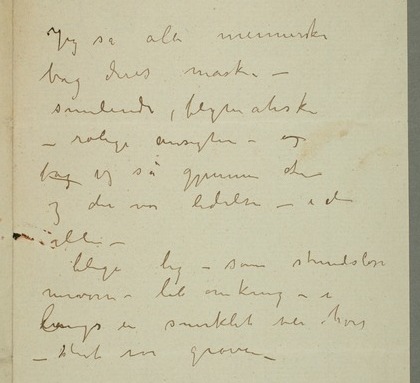 Jeg så alle mennesker
bag deres maske –
smilende, flegmatiske
– rolige ansigter – og
bag jeg så gjennem dem
og der var lidelse – i dem
alle –
blege lig – som
– løb omkring – i
langs en snirklet vei hvis
– slut var graven –